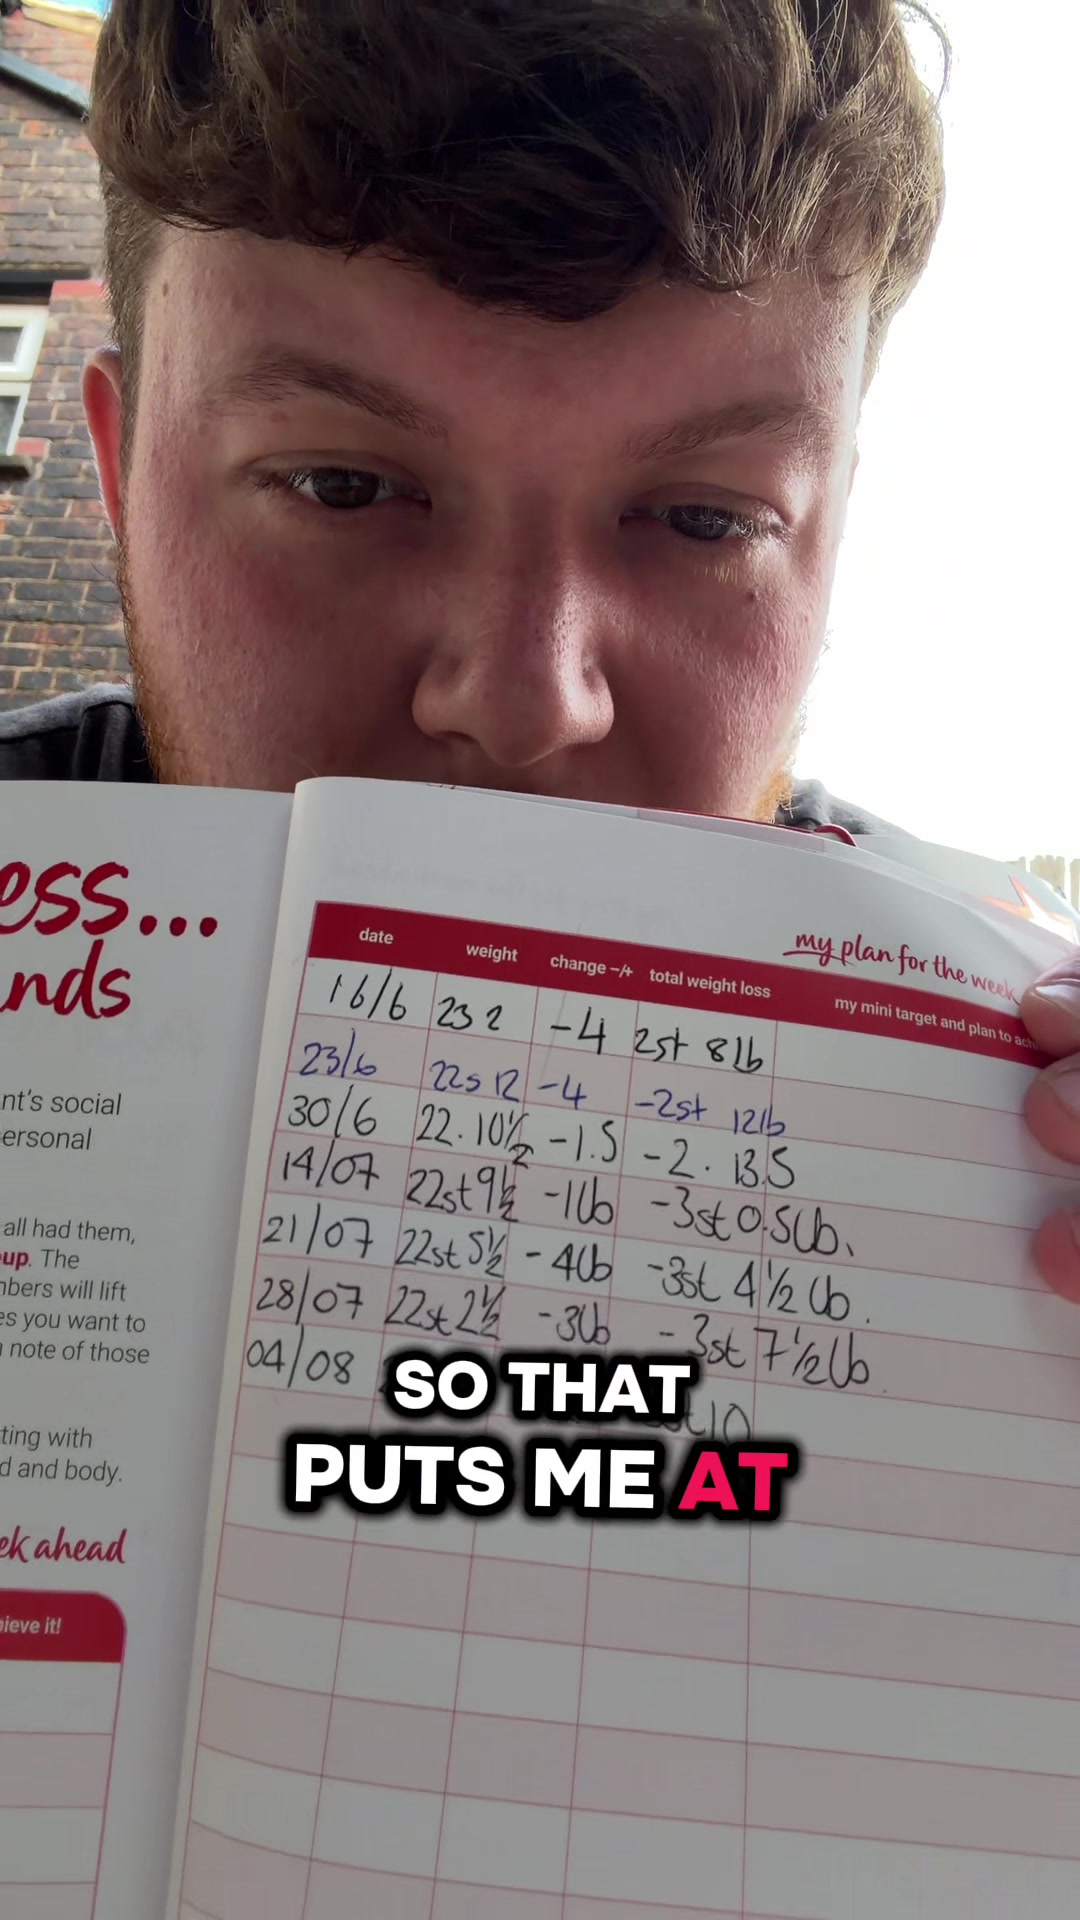 ess...
nds
nt's social
ersonal
all had them,
up. The
nbers will lift
es you want to
note of those
ting with
d and body.
ek ahead
ieve it!
my plan for the week
date weight change -/+ total weight loss my mini target and plan to ach
16/6 23 2 -4 2st 8lb
23/6 22s 12 -4 -2st 12lb
30/6 22.10½ -1.5 -2. 13.5
14/07 22st 9½ -1lb -3st 0.5lb.
21/07 22st 5½ -4lb -3st 4½lb.
28/07 22st 2½ -3lb -3st 7½lb.
04/08 st10
SO THAT
PUTS ME AT